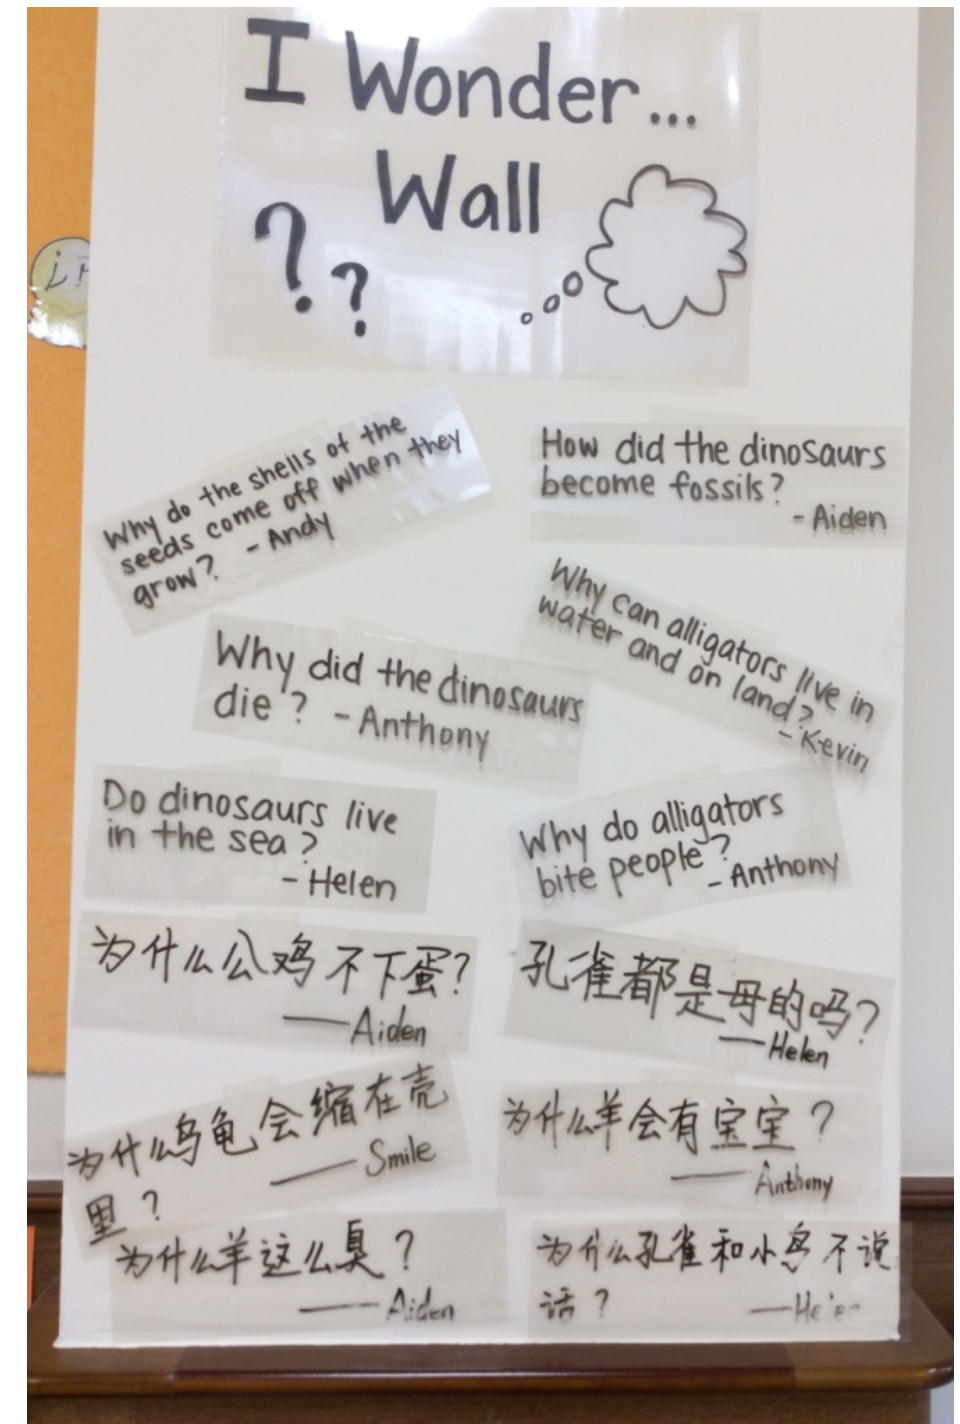 I Wonder...
Wall
? ?
Why do the shells of the
seeds come off when they
grow? - Andy
How did the dinosaurs
become fossils?
- Aiden
Why can alligators live in
water and on land?
- Kevin
Why did the dinosaurs
die? - Anthony
Do dinosaurs live
in the sea?
- Helen
Why do alligators
bite people?
- Anthony
为什么公鸡不下蛋?
——Aiden
孔雀都是母的吗?
——Helen
为什么乌龟会缩在壳
里?
——Smile
为什么羊会有宝宝?
——Anthony
为什么羊这么臭?
——Aiden
为什么孔雀和小鸟不说
话?
——Helen